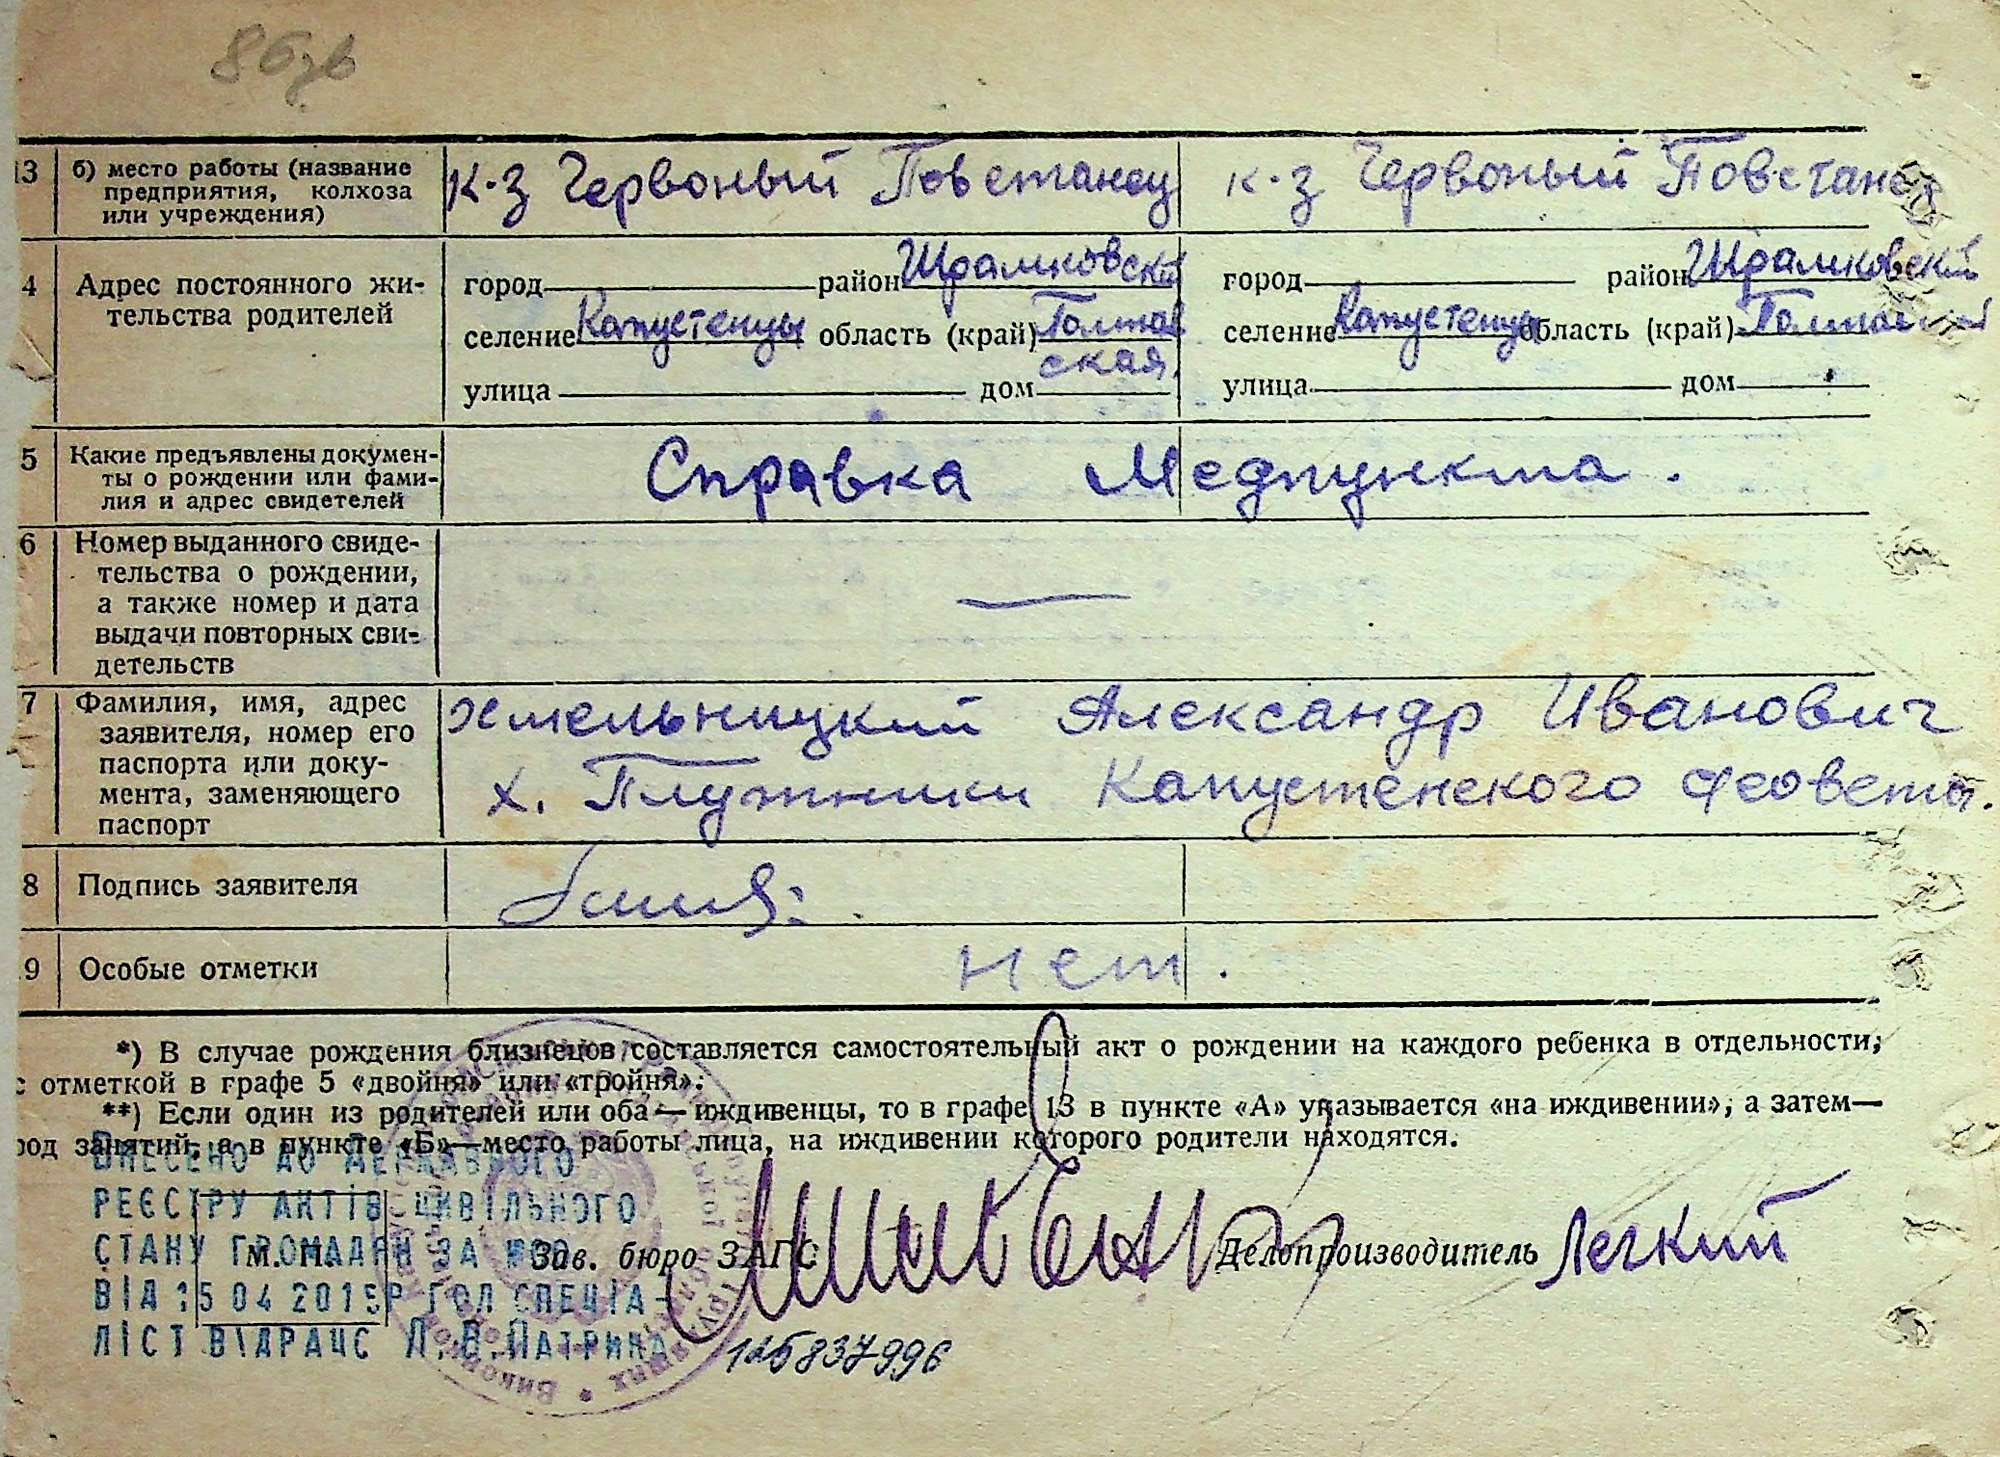 86зв
13 б) место работы (название предприятия, колхоза или учреждения) к-з Червоный Повстанец к-з Червоный Повстанец
4 Адрес постоянного жи-
тельства родителей
город район Шрамковский город район Шрамковский
селение Капустенцы область (край) Полтав
ская. селение Капустенцы область (край) Полтавская
улица дом улица дом
5 Какие предъявлены докумен-
ты о рождении или фами-
лия и адрес свидетелей
Справка Медпункта.
6 Номер выданного свиде-
тельства о рождении,
а также номер и дата
выдачи повторных сви-
детельств
—
7 Фамилия, имя, адрес
заявителя, номер его
паспорта или доку-
мента, заменяющего
паспорт
Хмельницкий Александр Иванович
х. Плужники Капустенского с/совета.
8 Подпись заявителя
9 Особые отметки нет.
*) В случае рождения близнецов составляется самостоятельный акт о рождении на каждого ребенка в отдельности,
с отметкой в графе 5 «двойня» или «тройня».
**) Если один из родителей или оба — иждивенцы, то в графе 13 в пункте «А» указывается «на иждивении», а затем—
род занятий, а в пункте «Б»—место работы лица, на иждивении которого родители находятся.
ВНЕСЕНО ДО ДЕРЖАВНОГО
РЕЄСТРУ АКТІВ ЦИВІЛЬНОГО
СТАНУ ГРОМАДЯН ЗА №00
ВІД 15 04 2015Р ГОЛ СПЕЦІА-
ЛІСТ ВІДРАЦС Л.В.ПАТРИНА
М. П. Зав. бюро ЗАГС Делопроизводитель Легкий
125837996